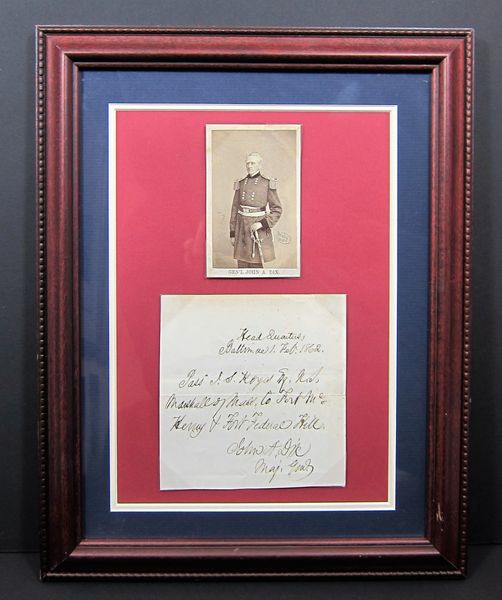 GEN'L JOHN A. DIX.
Head Quarters,
Baltimore 1. Feb. 1862.
Pass J. S. Keyes Esq. U.S.
Marshall of Mass. to Fort Mc
Henry & Fort Federal Hill.
John A. Dix
Maj. Genl